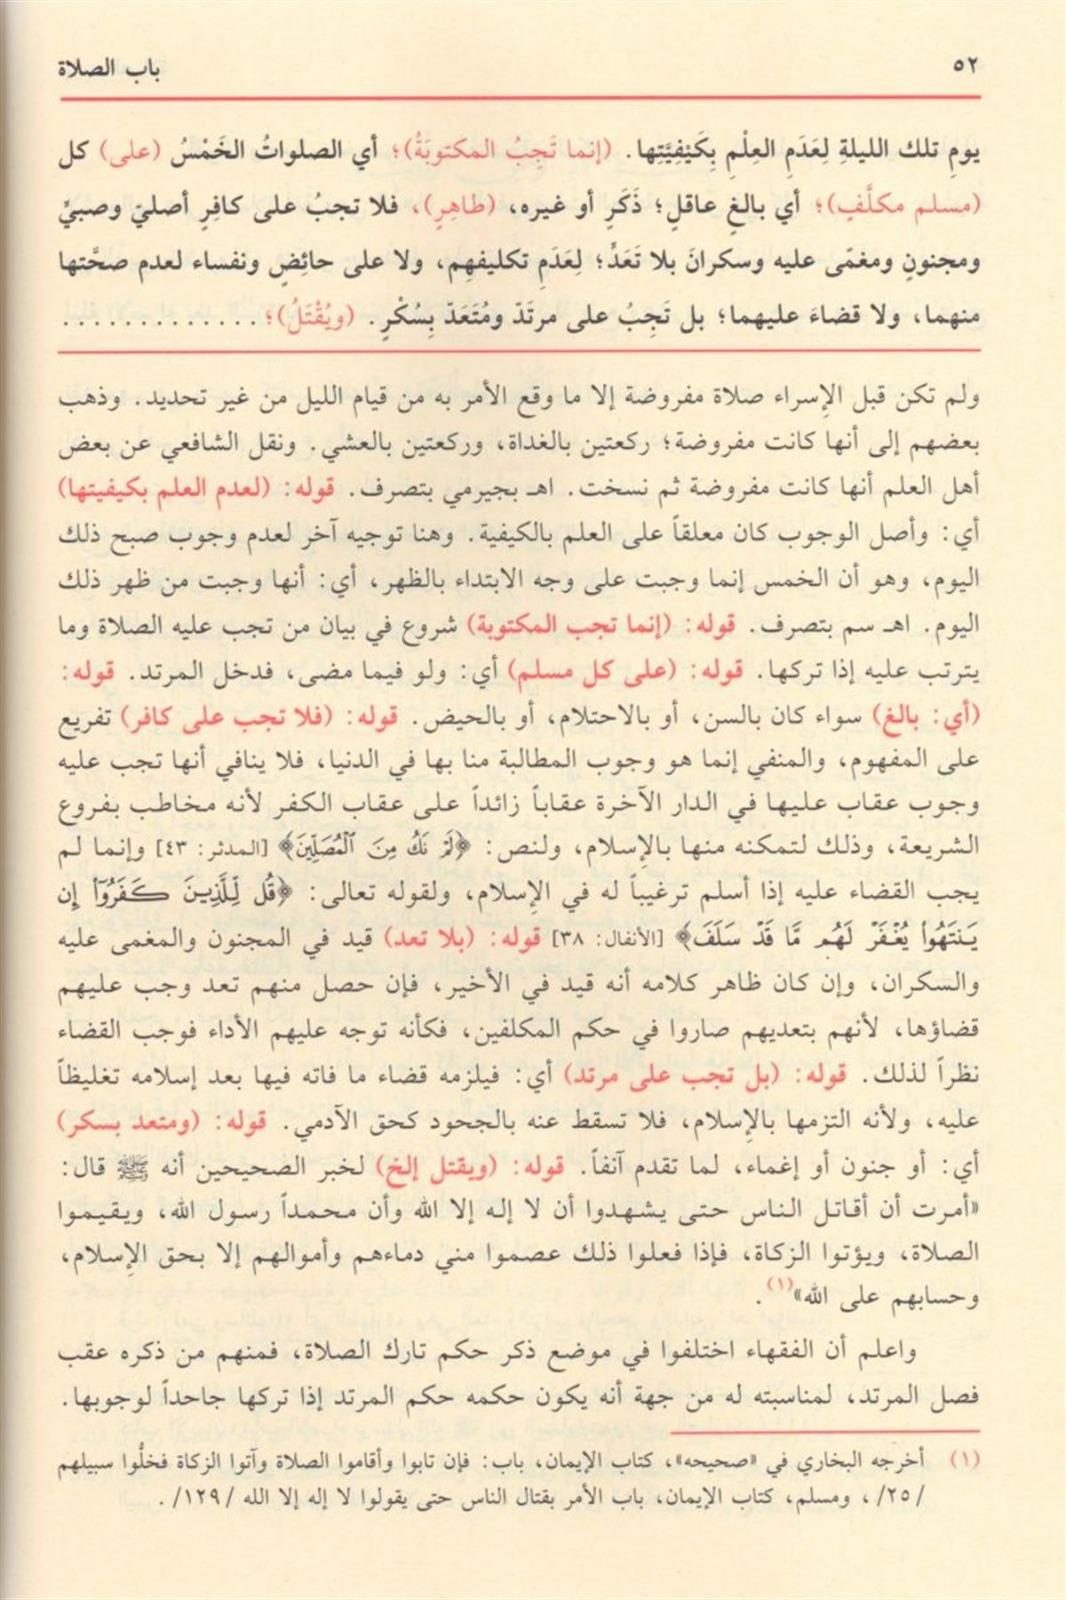 ٥٢ باب الصلاة
يومِ تلك الليلةِ لِعَدَمِ العِلْمِ بِكَيْفِيَّتِها. (إنما تَجِبُ المكتوبَةُ)؛ أي الصلواتُ الخَمْسُ (على) كل
(مسلم مكلَّفٍ)؛ أي بالغٍ عاقلٍ؛ ذَكَرٍ أو غيره، (طاهِرٍ)، فلا تجبُ على كافِرٍ أصليّ وصبيٍّ
ومجنونٍ ومغمّى عليه وسكرانَ بلا تَعَدٍّ؛ لِعَدَمِ تكليفهِم، ولا على حائِضٍ ونفساء لعدم صحَّتها
منهما، ولا قضاءَ عليهما؛ بل تَجِبُ على مرتَدّ ومُتَعَدّ بِسُكْرٍ. (ويُقْتَلُ)؛ .............
ولم تكن قبل الإسراء صلاة مفروضة إلا ما وقع الأمر به من قيام الليل من غير تحديد. وذهب
بعضهم إلى أنها كانت مفروضة؛ ركعتين بالغداة، وركعتين بالعشي. ونقل الشافعي عن بعض
أهل العلم أنها كانت مفروضة ثم نسخت. اهـ بجيرمي بتصرف. قوله: (لعدم العلم بكيفيتها)
أي: وأصل الوجوب كان معلقاً على العلم بالكيفية. وهنا توجيه آخر لعدم وجوب صبح ذلك
اليوم، وهو أن الخمس إنما وجبت على وجه الابتداء بالظهر، أي: أنها وجبت من ظهر ذلك
اليوم. اهـ سم بتصرف. قوله: (إنما تجب المكتوبة) شروع في بيان من تجب عليه الصلاة وما
يترتب عليه إذا تركها. قوله: (على كل مسلم) أي: ولو فيما مضى، فدخل المرتد. قوله:
(أي: بالغ) سواء كان بالسن، أو بالاحتلام، أو بالحيض. قوله: (فلا تجب على كافر) تفريع
على المفهوم، والمنفي إنما هو وجوب المطالبة منا بها في الدنيا، فلا ينافي أنها تجب عليه
وجوب عقاب عليها في الدار الآخرة عقاباً زائداً على عقاب الكفر لأنه مخاطب بفروع
الشريعة، وذلك لتمكنه منها بالإسلام، ولنص: ﴿لَمْ نَكُ مِنَ ٱلْمُصَلِّينَ﴾ [المدثر: ٤٣] وإنما لم
يجب القضاء عليه إذا أسلم ترغيباً له في الإسلام، ولقوله تعالى: ﴿قُل لِّلَّذِينَ كَفَرُوٓا۟ إِن
يَنتَهُوا۟ يُغْفَرْ لَهُم مَّا قَدْ سَلَفَ﴾ [الأنفال: ٣٨] قوله: (بلا تعد) قيد في المجنون والمغمى عليه
والسكران، وإن كان ظاهر كلامه أنه قيد في الأخير، فإن حصل منهم تعد وجب عليهم
قضاؤها، لأنهم بتعديهم صاروا في حكم المكلفين، فكأنه توجه عليهم الأداء فوجب القضاء
نظراً لذلك. قوله: (بل تجب على مرتد) أي: فيلزمه قضاء ما فاته فيها بعد إسلامه تغليظاً
عليه، ولأنه التزمها بالإسلام، فلا تسقط عنه بالجحود كحق الآدمي. قوله: (ومتعد بسكر)
أي: أو جنون أو إغماء، لما تقدم آنفاً. قوله: (ويقتل إلخ) لخبر الصحيحين أنه ﷺ قال:
«أمرت أن أقاتل الناس حتى يشهدوا أن لا إله إلا الله وأن محمداً رسول الله، ويقيموا
الصلاة، ويؤتوا الزكاة، فإذا فعلوا ذلك عصموا مني دماءهم وأموالهم إلا بحق الإسلام،
وحسابهم على الله»(١).
واعلم أن الفقهاء اختلفوا في موضع ذكر حكم تارك الصلاة، فمنهم من ذكره عقب
فصل المرتد، لمناسبته له من جهة أنه يكون حكمه حكم المرتد إذا تركها جاحداً لوجوبها.
(١) أخرجه البخاري في «صحيحه»، كتاب الإيمان، باب: فإن تابوا وأقاموا الصلاة وآتوا الزكاة فخلُّوا سبيلهم
/٢٥/، ومسلم، كتاب الإيمان، باب الأمر بقتال الناس حتى يقولوا لا إله إلا الله /١٢٩/.